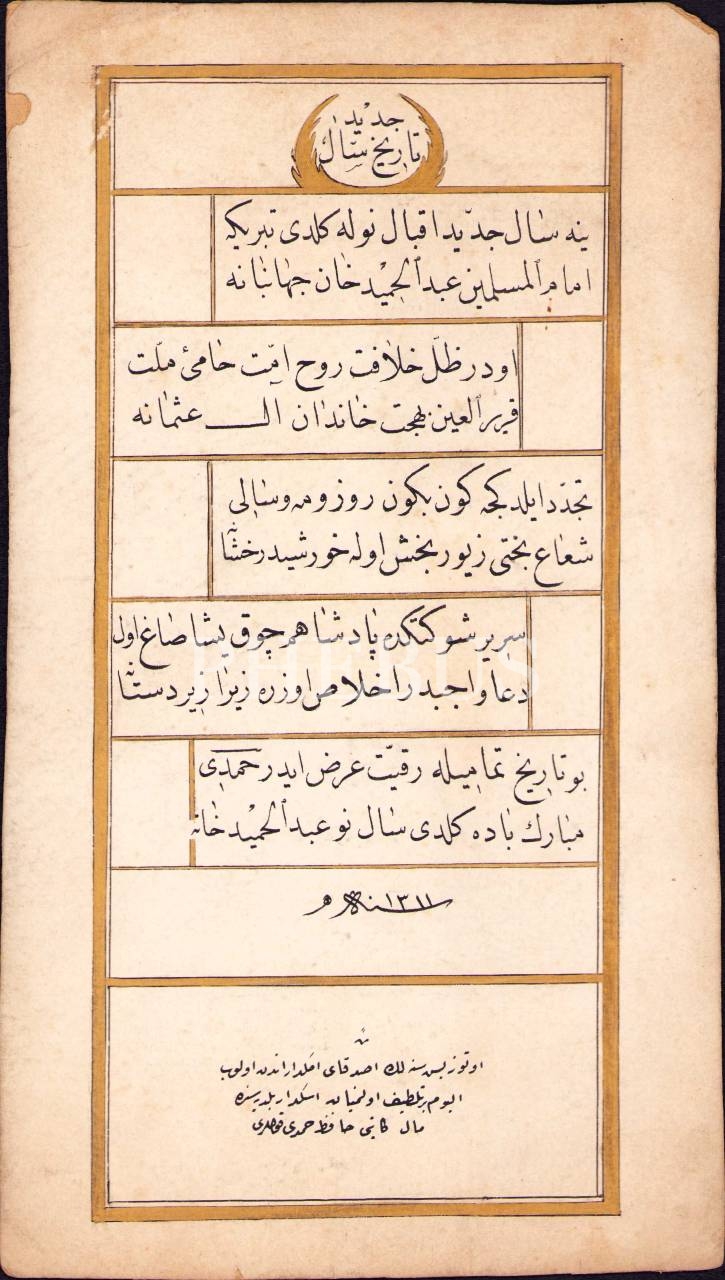 تاريخ سال جديد
ينه سال جديد اقبال نوله كلدی تبريكه
امام المسلمين عبدالحميد خان جهانبانه
اودر ظلّ خلافت روح امّت حامئ ملّت
قرير العين بهجت خاندان ال عثمانه
تجدّد ايلدكجه كون بكون روز و مه و سالی
شعاع بختی زيور بخش اوله خورشيد رخشانه
سرير شوكتكده پادشاهم چوق يشا صاغ اول
دعا واجبدر اخلاص اوزره زيرا زيردستانه
بو تاريخ تماميله رقيّت عرض ايدر حمدی
مبارك باده كلدی سال نو عبدالحميد خانه
سنه ١٣١١
اوتوز بش سنه لك اصدقای امكداراندن اولوب
اليوم تلطيف اولنميان اسكدار بلديه سنده
مال كاتبی حافظ حمدی قوللری
PHEBUS